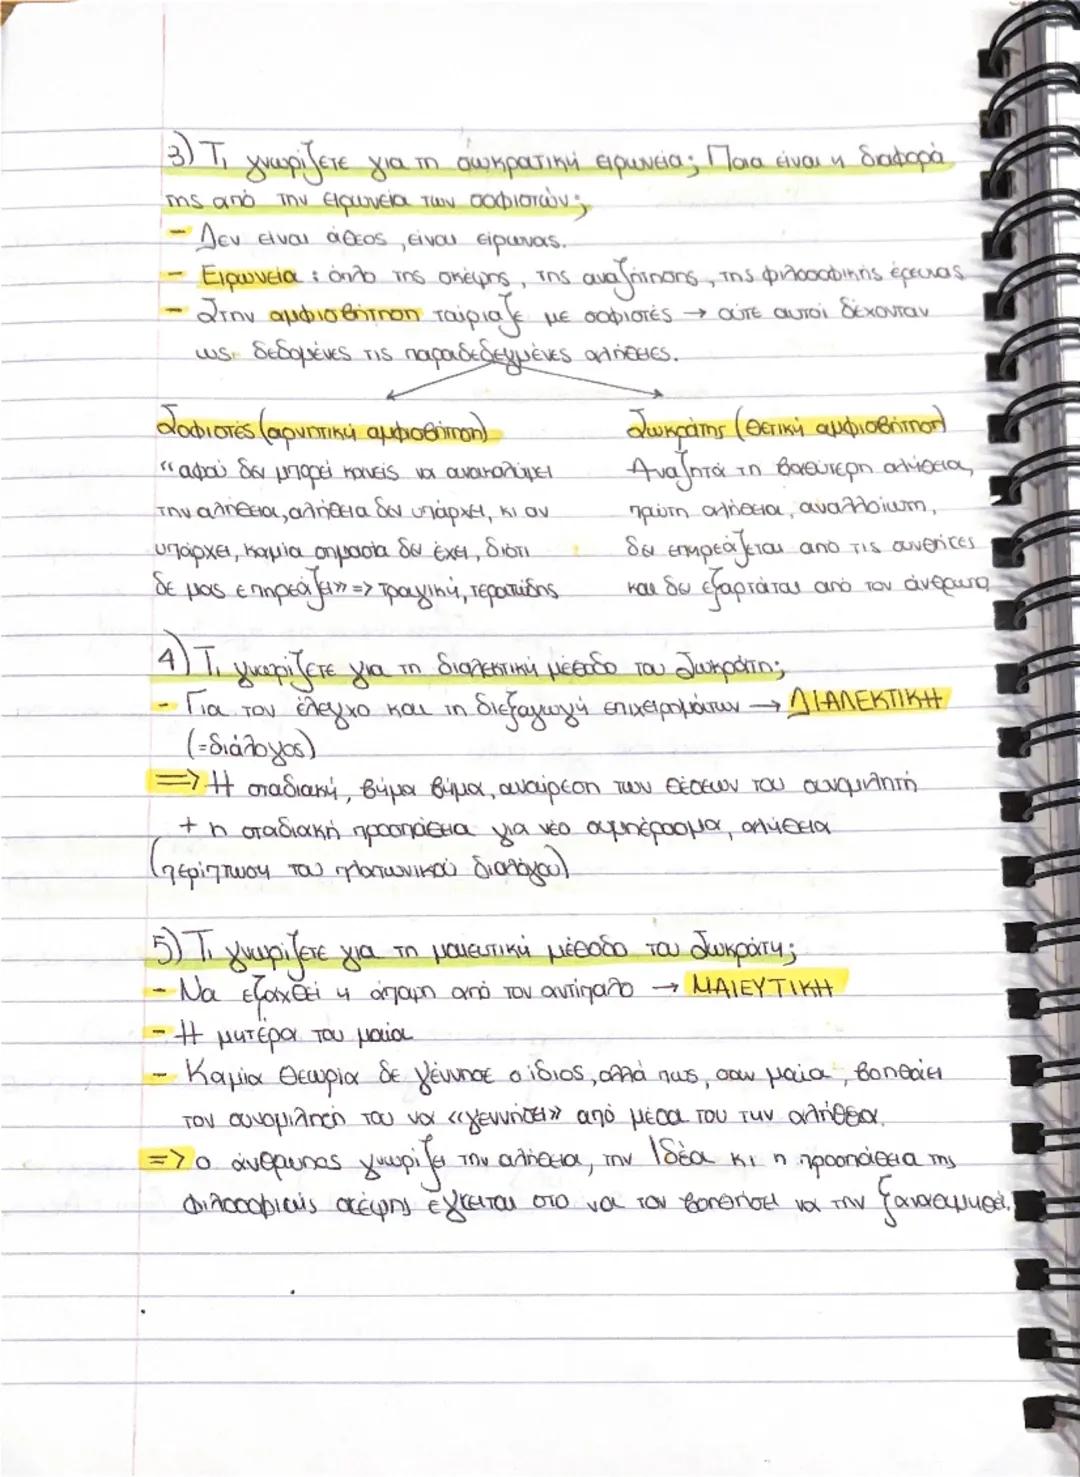 3) Τι γνωρίζετε για τη σωκρατική ειρωνεία; Ποια είναι η διαφορά
της από την ειρωνεία των σοφιστών;
- Δεν είναι άθεος, είναι είρωνας.
- Ειρωνεία : όπλο της σκέψης, της αναζήτησης, της φιλοσοφικής έρευνας
- Στην αμφισβήτηση ταίριαζε με σοφιστές → ούτε αυτοί δέχονταν
ως δεδομένες τις παραδεδεγμένες αλήθειες.
Σοφιστές (αρνητική αμφισβήτηση)
«αφού δεν μπορεί κανείς να ανακαλύψει
την αλήθεια, αλήθεια δεν υπάρχει, κι αν
υπάρχει, καμία σημασία δεν έχει, διότι
δε μας επηρεάζει» => τραγική, τερατώδης
Σωκράτης (θετική αμφισβήτηση)
Αναζητά τη βαθύτερη αλήθεια,
πρώτη αλήθεια, αναλλοίωτη,
δεν επηρεάζεται από τις συνθήκες
και δεν εξαρτάται από τον άνθρωπο
4) Τι γνωρίζετε για τη διαλεκτική μέθοδο του Σωκράτη;
- Για τον έλεγχο και τη διεξαγωγή επιχειρημάτων → ΔΙΑΛΕΚΤΙΚΗ
(=διάλογος)
=> Η σταδιακή, βήμα βήμα, αναίρεση των θέσεων του συνομιλητή
+ η σταδιακή προσπάθεια για νέο συμπέρασμα, αλήθεια
(περίπτωση του πλατωνικού διαλόγου)
5) Τι γνωρίζετε για τη μαιευτική μέθοδο του Σωκράτη;
- Να εξαχθεί η άποψη από τον αντίπαλο → ΜΑΙΕΥΤΙΚΗ
- Η μητέρα του μαία
- Καμία θεωρία δε γέννησε ο ίδιος, αλλά πως, σαν μαία, βοηθάει
τον συνομιλητή του να «γεννήσει» από μέσα του την αλήθεια.
=> ο άνθρωπος γνωρίζει την αλήθεια, την Ιδέα κι η προσπάθεια της
φιλοσοφικής σκέψης έγκειται στο να τον βοηθήσει να την ξαναθυμηθεί.